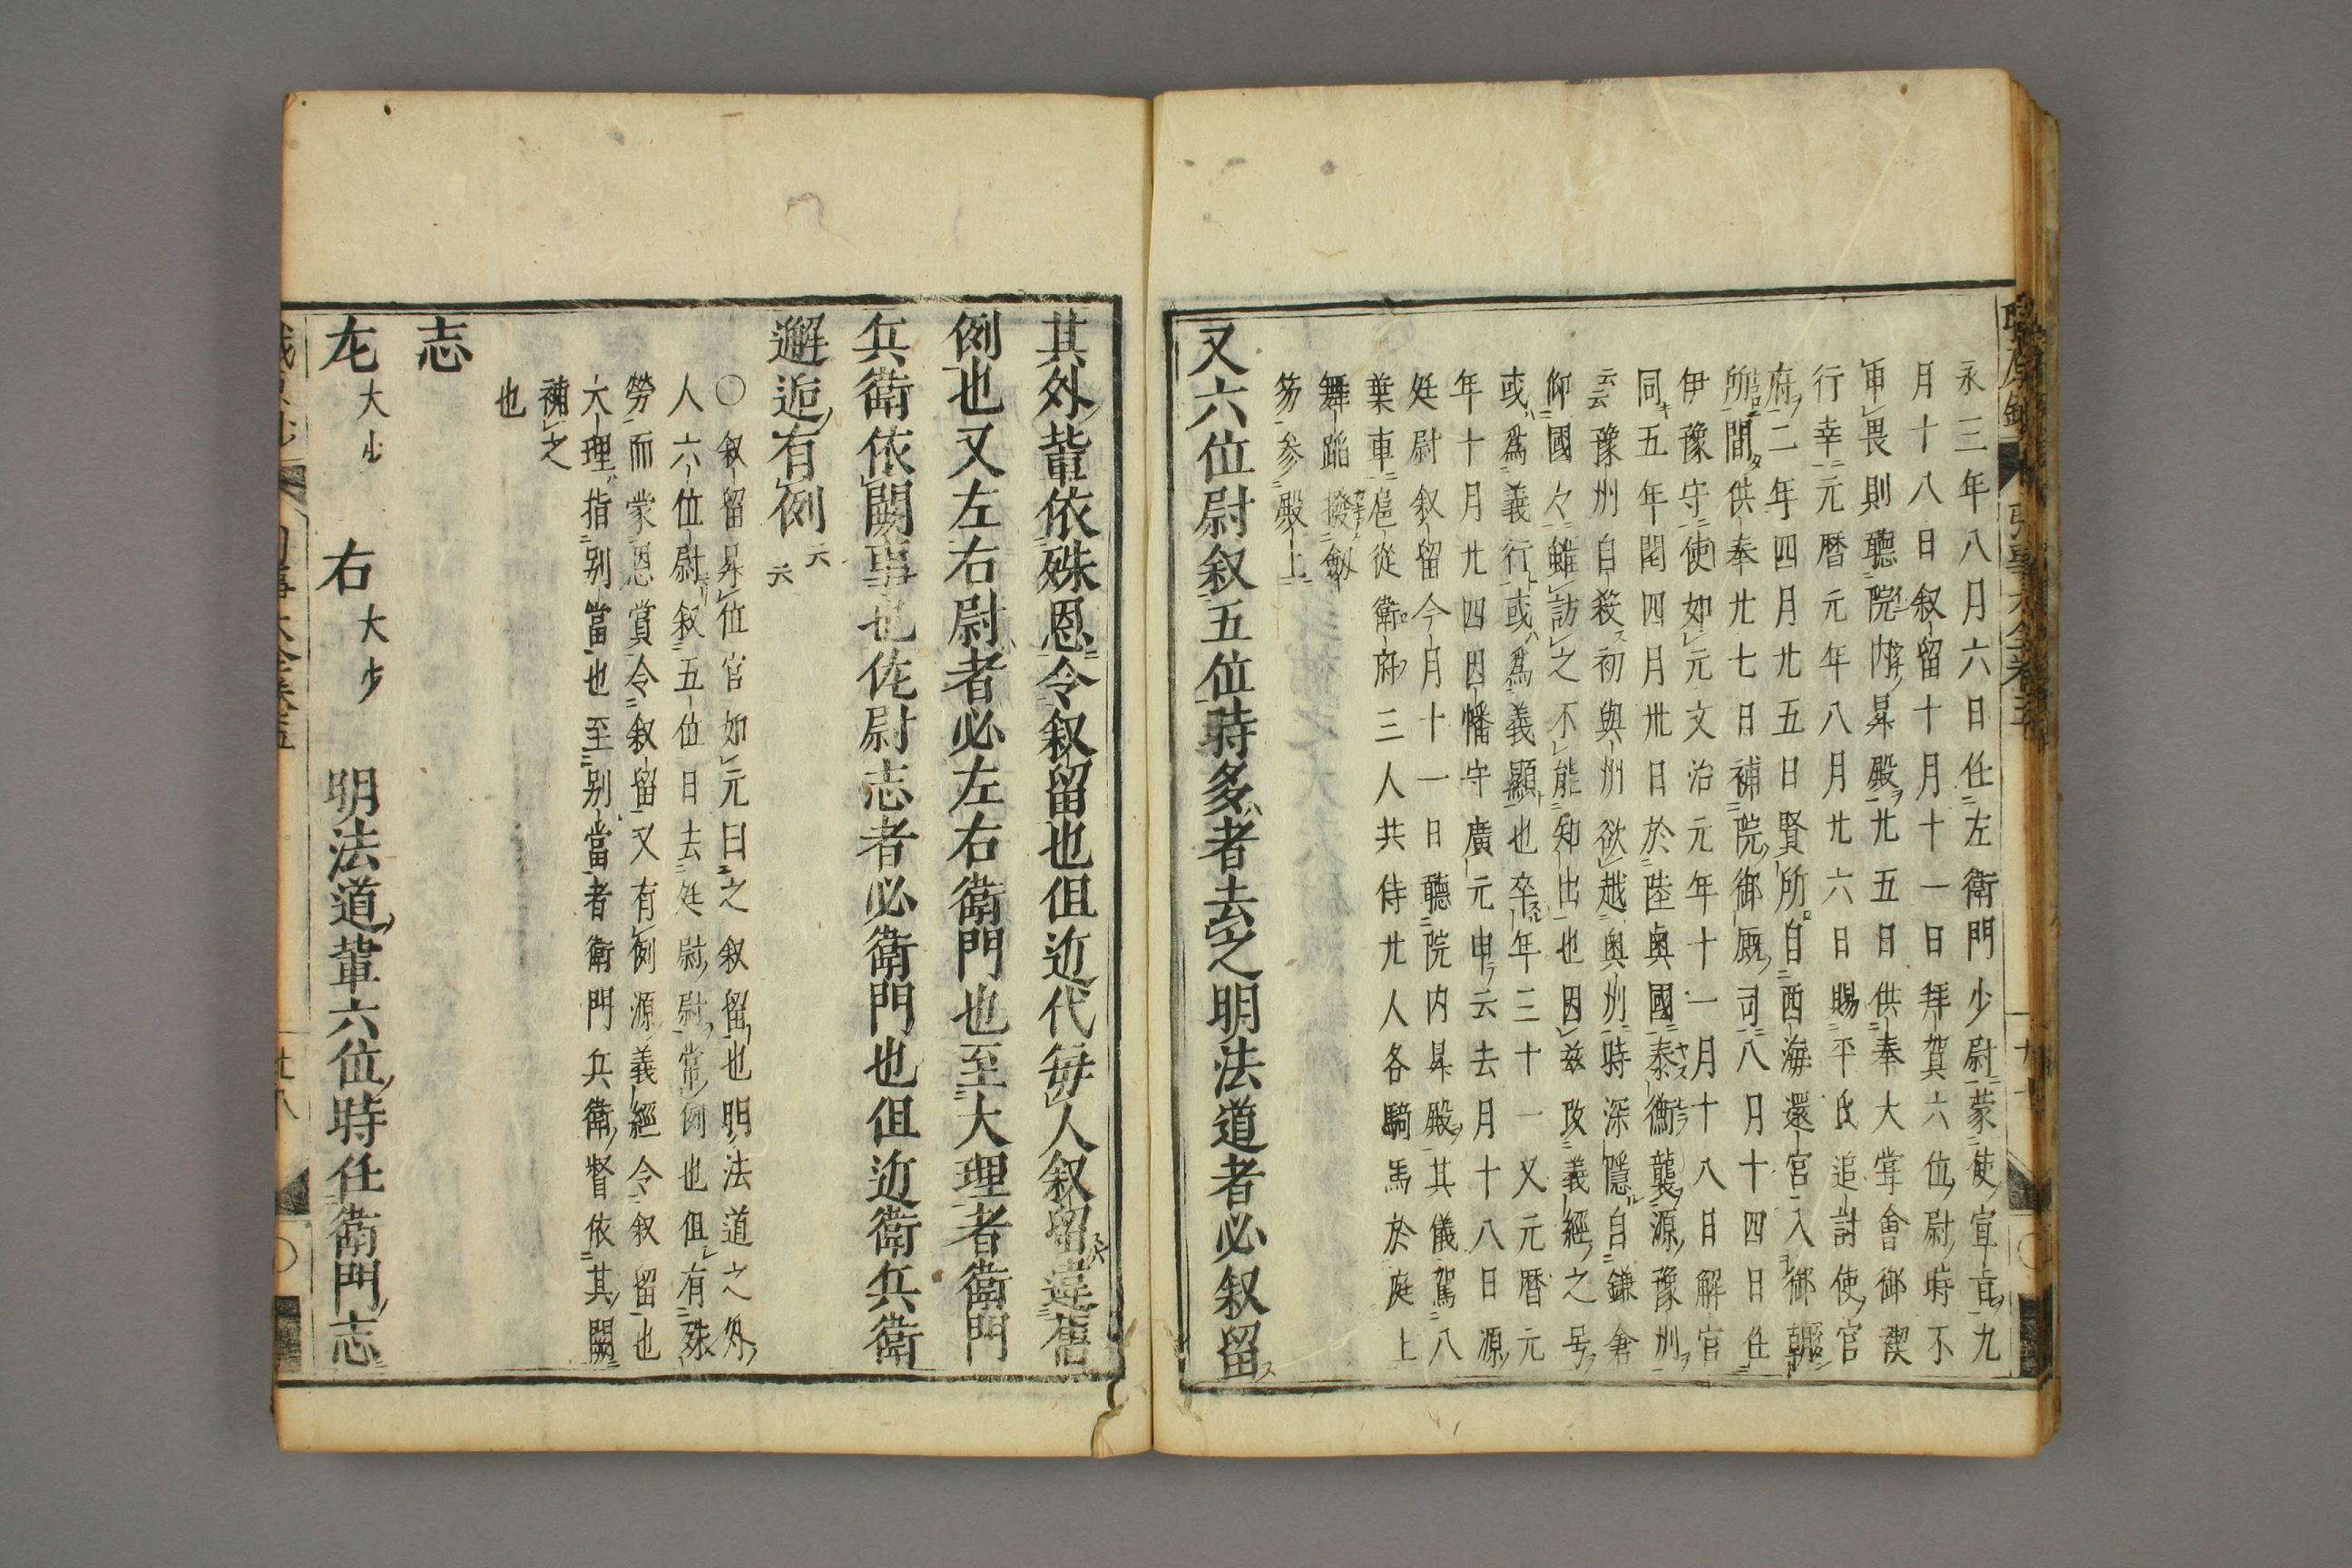 永三年八月六日任左衛門少尉蒙使宣旨九
月十八日叙留十月十一日拜賀六位尉時不
申畏則聽院内昇殿廿五日供奉大嘗會御禊
行幸元暦元年八月廿六日賜平氏追討使官
府二年四月廿五日賢所自西海還宮入御朝
所間供奉廿七日補院御厩司八月十四日任
伊豫守使如元文治元年十一月十八日解官
同五年閏四月卅日於陸奥國泰衡襲源豫州
云云豫州自殺初與州欲越奥州時深隱自鎌倉
仰國々雖訪之不能知出也因茲改義經之号
或爲義行或爲義顯也卒年三十一又元暦元
年十月廿四日因幡守廣元申云去月十八日源
廷尉叙留今月十一日聽院内昇殿其儀駕八
葉車扈從衛府三人共侍廿人各騎馬於庭上
舞蹈撥劔
笏参殿上
又六位尉叙五位時多者去之明法道者必叙留
其外輩依殊恩令叙留也但近代毎人叙留違舊
例也又左右尉者必左右衛門也至大理者衛門
兵衛依闕事也佐尉志者必衛門也但近衛兵衛
邂逅有例云云
〇叙留昇位官如元曰之叙留也明法道之外
人六位尉叙五位日去廷尉尉常例也但有殊
勞而蒙恩賞令叙留又有例源義經令叙留也
大理指別當也至別當者衛門兵衛督依其闕
補之
也
志
左大少 右大少 明法道輩六位時任衛門志